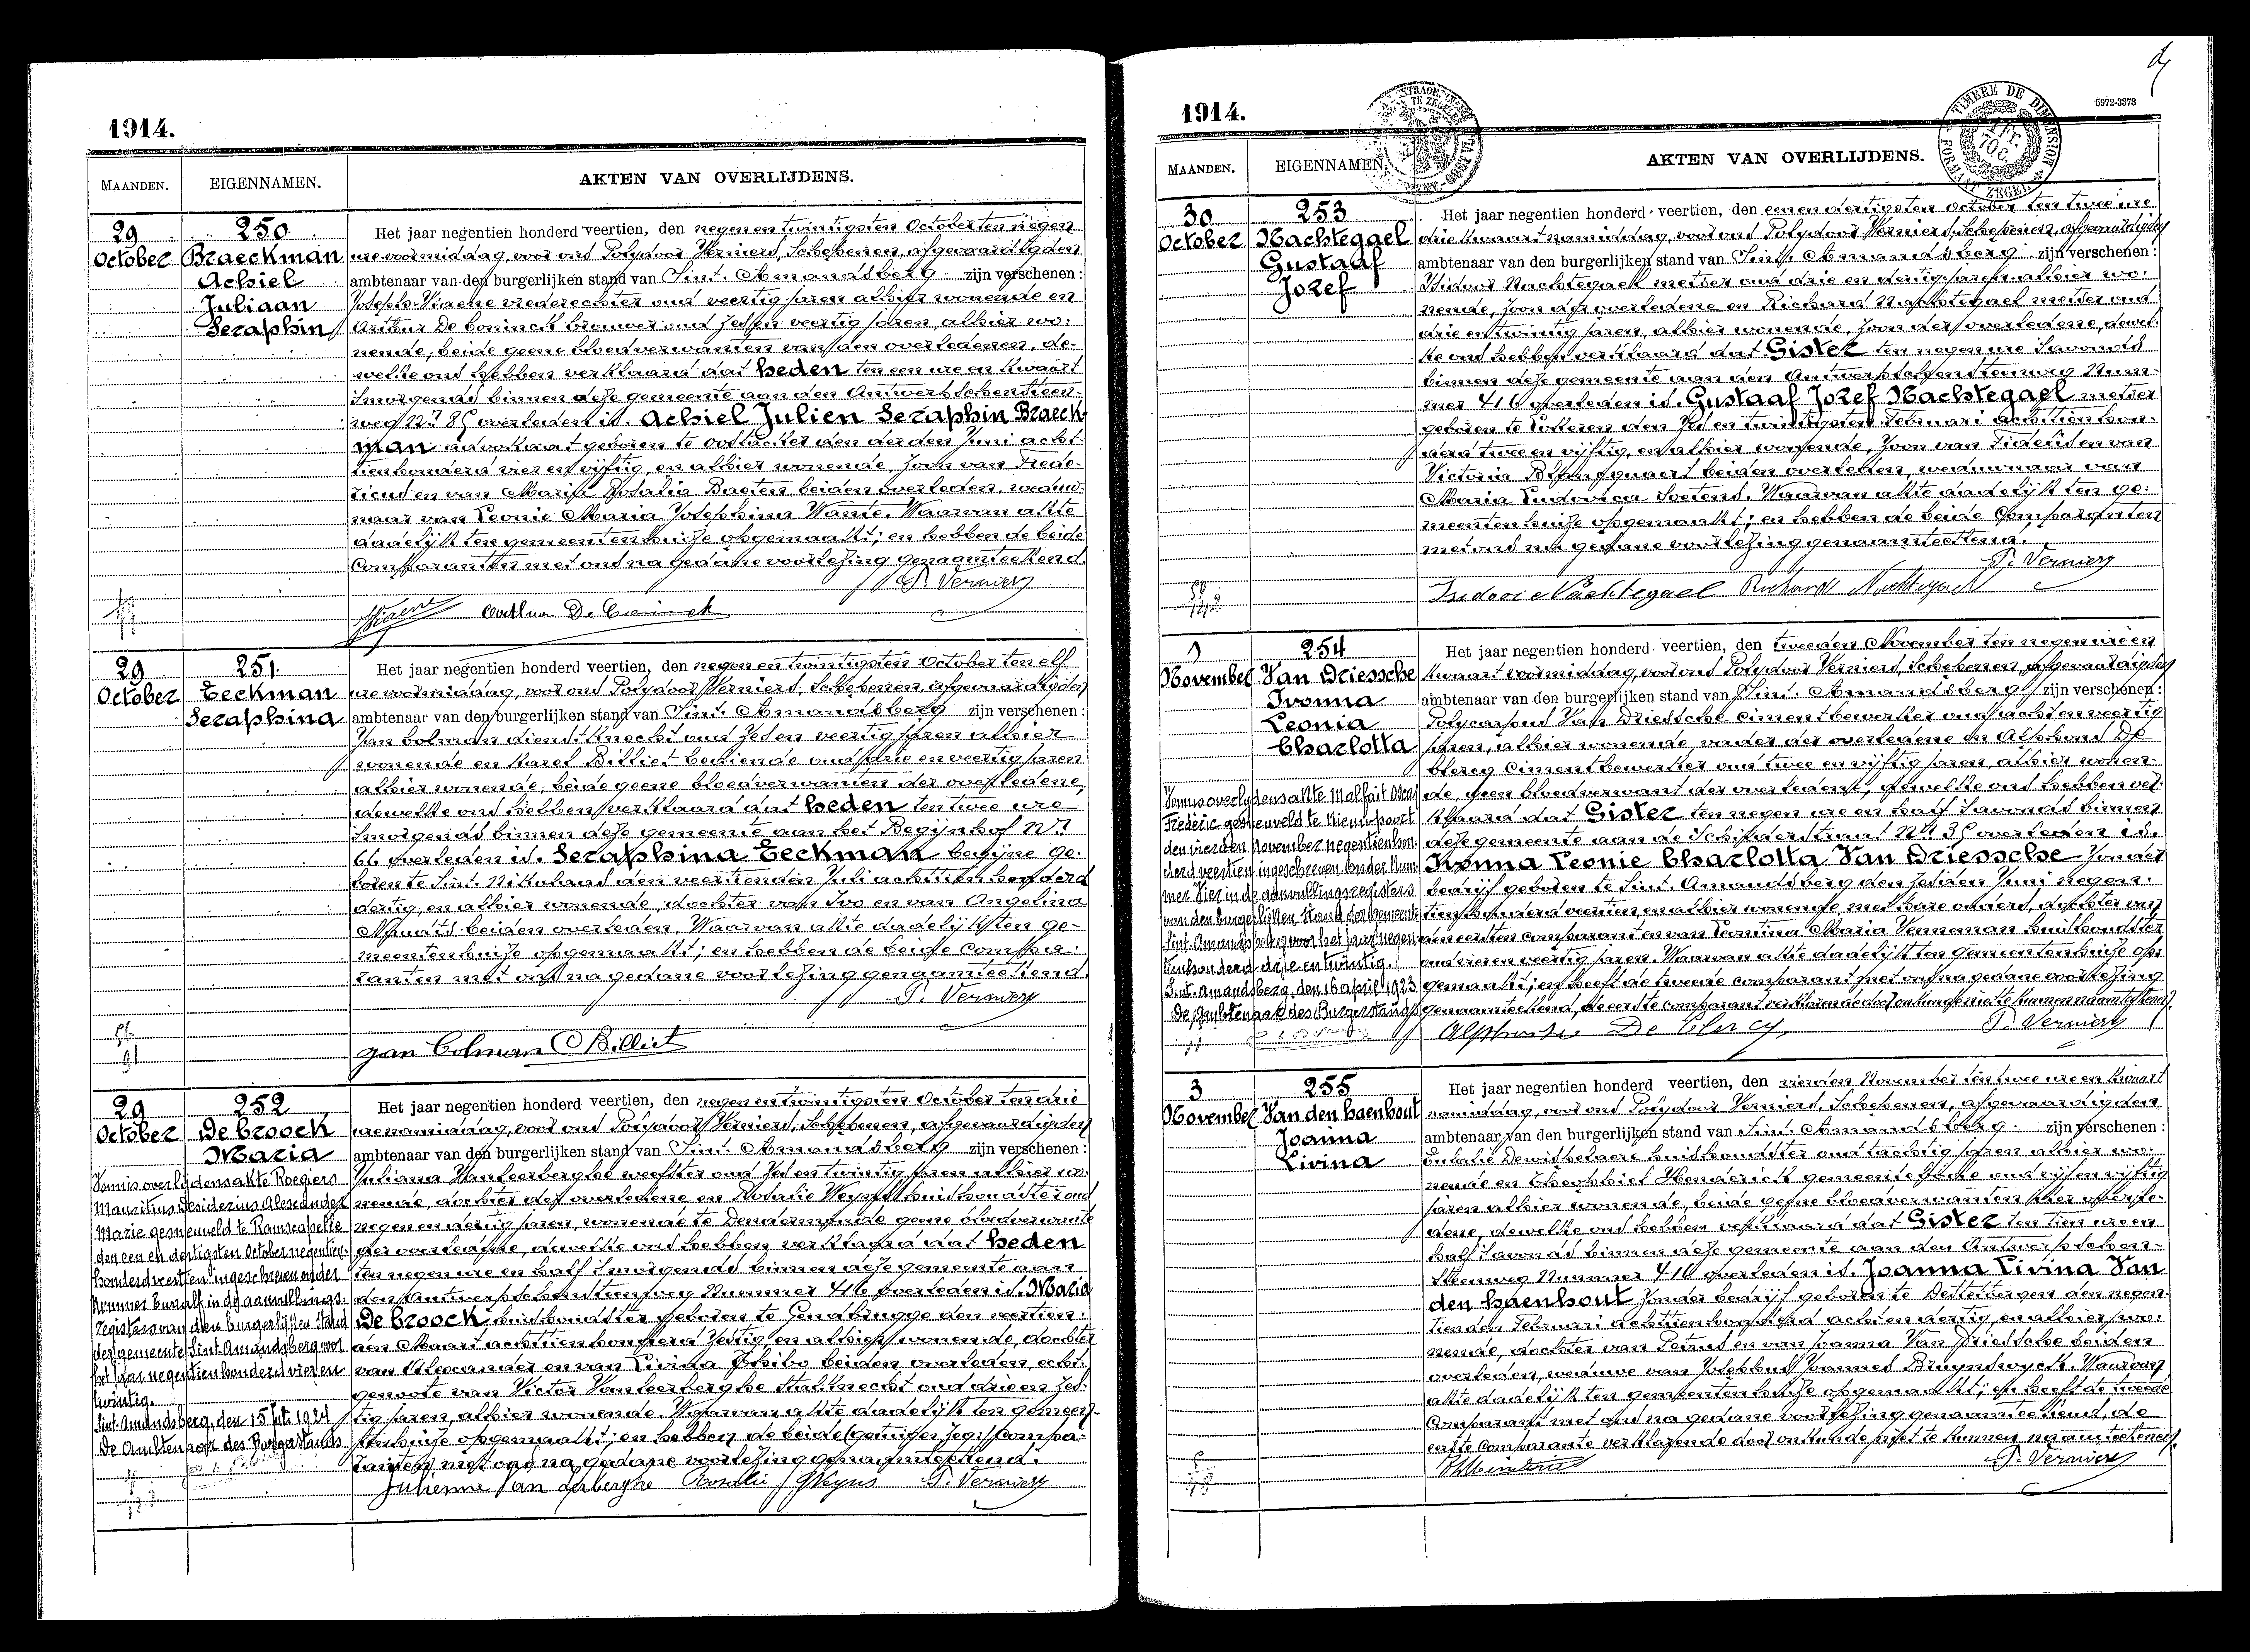 1914.
MAANDEN.
EIGENNAMEN.
AKTEN VAN OVERLIJDENS.
29
October
250
Braeckman
Achiel
Juliaan
Seraphin
Het jaar negentien honderd veertien, den negen en twintigsten October ten negen
ure voormiddag, voor ons Polydoor Verniers, Schepenen, afgevaardigden
ambtenaar van den burgerlijken stand van Sint Amandsberg zijn verschenen:
Joseph Viaene vrederechter oud veertig jaren alhier wonende en
Arthur De Coninck brouwer oud zes en veertig jaren, alhier wo-
nende, beide geene bloedverwanten van den overledenen, de-
welke ons hebben verklaard dat heden ten een ure en kwaart
smorgends binnen deze gemeente aan den Antwerpschensteen-
weg Nr 85 overleden is. Achiel Julien Seraphin Braeck-
man advokaat geboren te Oostacker den derden Juni acht-
tien honderd vier en vijftig, en alhier wonende, zoon van Frede-
ricus en van Marie Rosalia Baeten beiden overleden, weduw-
naar van Leonie Maria Josephina Wante. Waarvan akte
dadelijk ten gemeentenhuize opgemaakt; en hebben de beide
Comparanten met ons na gedane voorlezing genaamteekend.
P. Verniers
JViaene Arthur De Coninck
29
October
251
Eeckman
Seraphina
Het jaar negentien honderd veertien, den negen en twintigsten October ten elf
ure voormiddag, voor ons Polydoor Verniers, Schepenen, afgevaardigden
ambtenaar van den burgerlijken stand van Sint Amandsberg zijn verschenen:
Jan Colman dienstknecht oud zes en veertig jaren alhier
wonende en Karel Billiet bediende oud drie en veertig jaren
alhier wonende, beide geene bloedverwanten der overledene,
dewelke ons hebben verklaard dat heden ten twee ure
smorgends binnen deze gemeente aan het Begijnhof Nr
66 overleden is. Seraphina Eeckman begijne ge-
boren te Sint Nikolaas den veertienden Juli achttien honderd
dertig, en alhier wonende, dochter van Ivo en van Angelina
beiden overleden. Waarvan akte dadelijk ten ge-
meentenhuize opgemaakt; en hebben de beide Compa-
ranten met ons na gedane voorlezing genaamteekend.
P. Verniers
Jan Colman C Billiet
29
October
252
De Croock
Maria
Vonnis overlijdensakte Roegiers
Mauritius Desiderius Alexander
Marie gesneuveld te Ramscapelle
den een en dertigsten October negentien-
honderd veertien ingeschreven onder
Nummer twaalf in de aanvullings-
registers van den burgerlijken stand
der gemeente Sint Amandsberg voor
het jaar negentien honderd vier en
twintig.
Sint Amandsberg, den 15 1924
De Ambtenaar des Burgerstands
Het jaar negentien honderd veertien, den negen en twintigsten October ten drie
ure namiddag, voor ons Polydoor Verniers, Schepenen, afgevaardigden
ambtenaar van den burgerlijken stand van Sint Amandsberg zijn verschenen:
Juliana Vanleerberghe weefster oud zes en twintig jaren alhier wo-
nende, dochter der overledene en Rosalie Weyns huishoudster oud
negen en dertig jaren, wonende te Dendermonde geene bloedverwante
der overledene, dewelke ons hebben verklaard dat heden
ten negen ure en half smorgends binnen deze gemeente aan
den Antwerpschensteenweg Nummer 416 overleden is. Maria
De Croock huishoudster geboren te Gendbrugge den veertien-
den Maart achttien honderd zestig en alhier wonende, dochter
van Alexander en van Livina Thibo beiden overleden, echt-
genoote van Victor Vanleerberghe stalknecht oud drie en zes-
tig jaren, alhier wonende. Waarvan akte dadelijk ten gemeen-
tenhuize opgemaakt; en hebben de beide (getuigen, zeg:) compa-
ranten met ons na gedane voorlezing genaamteekend.
Julienne Van Lerberghe Rosalie Weyns P. Verniers
1914.
5972-3373
TIMBRE DE DIMENSION
MAANDEN.
EIGENNAMEN.
AKTEN VAN OVERLIJDENS.
30
October
253
Nachtegael
Gustaaf
Jozef
Het jaar negentien honderd veertien, den eenen dertigsten October ten twee ure
drie kwaart namiddag, voor ons Polydoor Verniers, Schepenen, afgevaardigden
ambtenaar van den burgerlijken stand van Sint Amandsberg zijn verschenen:
Isidoor Nachtegael metser oud drie en dertig jaren alhier wo-
nende, zoon der overledene en Richard Nachtegael metser oud
drie en twintig jaren, alhier wonende, zoon der overledene, dewel-
ke ons hebben verklaard dat Gister ten negen ure savonds
binnen deze gemeente aan den Antwerpschensteenweg Num-
mer 416 overleden is. Gustaaf Jozef Nachtegael metser
geboren te Lotteren den zes en twintigsten Februari achttien hon-
derd twee en vijftig, en alhier wonende, zoon van Fideel en van
Victoria beiden overleden, weduwnaar van
Maria Ludovica Soetens. Waarvan akte dadelijk ten ge-
meentenhuize opgemaakt; en hebben de beide Comparanten
met ons na gedane voorlezing genaamteekend.
P. Verniers
Isidoor Nachtegael Richard Nachtegael
1
November
254
Van Driessche
Ivonna
Leonia
Charlotta
Vonnis overlijdensakte Malfait Oscar
Frederic gesneuveld te Nieuwpoort
den vierden November negentien hon-
derd veertien ingeschreven onder Num-
mer vier in de aanvullingsregisters
van den burgerlijken stand der gemeente
Sint Amandsberg voor het jaar negen-
tienhonderd drie en twintig.
Sint Amandsberg, den 16 April 1923
De Ambtenaar des Burgerstands
Het jaar negentien honderd veertien, den tweeden November ten negen ure en
kwaart voormiddag, voor ons Polydoor Verniers, Schepenen, afgevaardigden
ambtenaar van den burgerlijken stand van Sint Amandsberg zijn verschenen:
Polycarpus Van Driessche cimentbewerker oud acht en veertig
jaren, alhier wonende, vader der overledene en Alphons De
Clercq Cimentbewerker oud twee en vijftig jaren, alhier wonen-
de, geen bloedverwant der overledene, dewelke ons hebben ver-
klaard dat Gister ten negen ure en half savonds binnen
deze gemeente aan de Schilderstraat Nr 35 overleden is.
Ivonna Leonie Charlotta Van Driessche zonder
bedrijf geboren te Sint Amandsberg den zesden Juni negen-
tien honderd veertien en alhier wonende, met hare ouders, dochter van
den eersten comparant en van Leontina Maria Venneman huishoudster
oud vier en veertig jaren. Waarvan akte dadelijk ten gemeentenhuize op-
gemaakt; en heeft de tweede comparant met ons na gedane voorlezing
genaamteekend, de eerste comparant verklarende door onkunde niet te kunnen naamteekenen.
Alphonse De Clercq P. Verniers
3
November
255
Van den haenhout
Joanna
Livina
Het jaar negentien honderd veertien, den vierden November ten twee ure en kwaart
namiddag, voor ons Polydoor Verniers, Schepenen, afgevaardigden
ambtenaar van den burgerlijken stand van Sint Amandsberg zijn verschenen:
Eulalie Dewispelaere huishoudster oud tachtig jaren alhier wo-
nende en Theophiel Henderick gemeentebode oud vijf en vijftig
jaren alhier wonende, beide geene bloedverwanten der overle-
dene, dewelke ons hebben verklaard dat Gister ten tien ure en
half savonds binnen deze gemeente aan den Antwerpschen-
steenweg Nummer 416 overleden is. Joanna Livina Van
den haenhout zonder bedrijf geboren te Destelbergen den negen-
tienden Februari achttien honderd acht en dertig en alhier wo-
nende, dochter van Petrus en van Joanna Van Driessche beiden
overleden, weduwe van Josephus Joannes Bruyndonckx. Waarvan
akte dadelijk ten gemeentenhuize opgemaakt; en heeft de tweede
Comparant met ons na gedane voorlezing genaamteekend, de
eerste Comparante verklarende door onkunde niet te kunnen naamteekenen.
P. Verniers